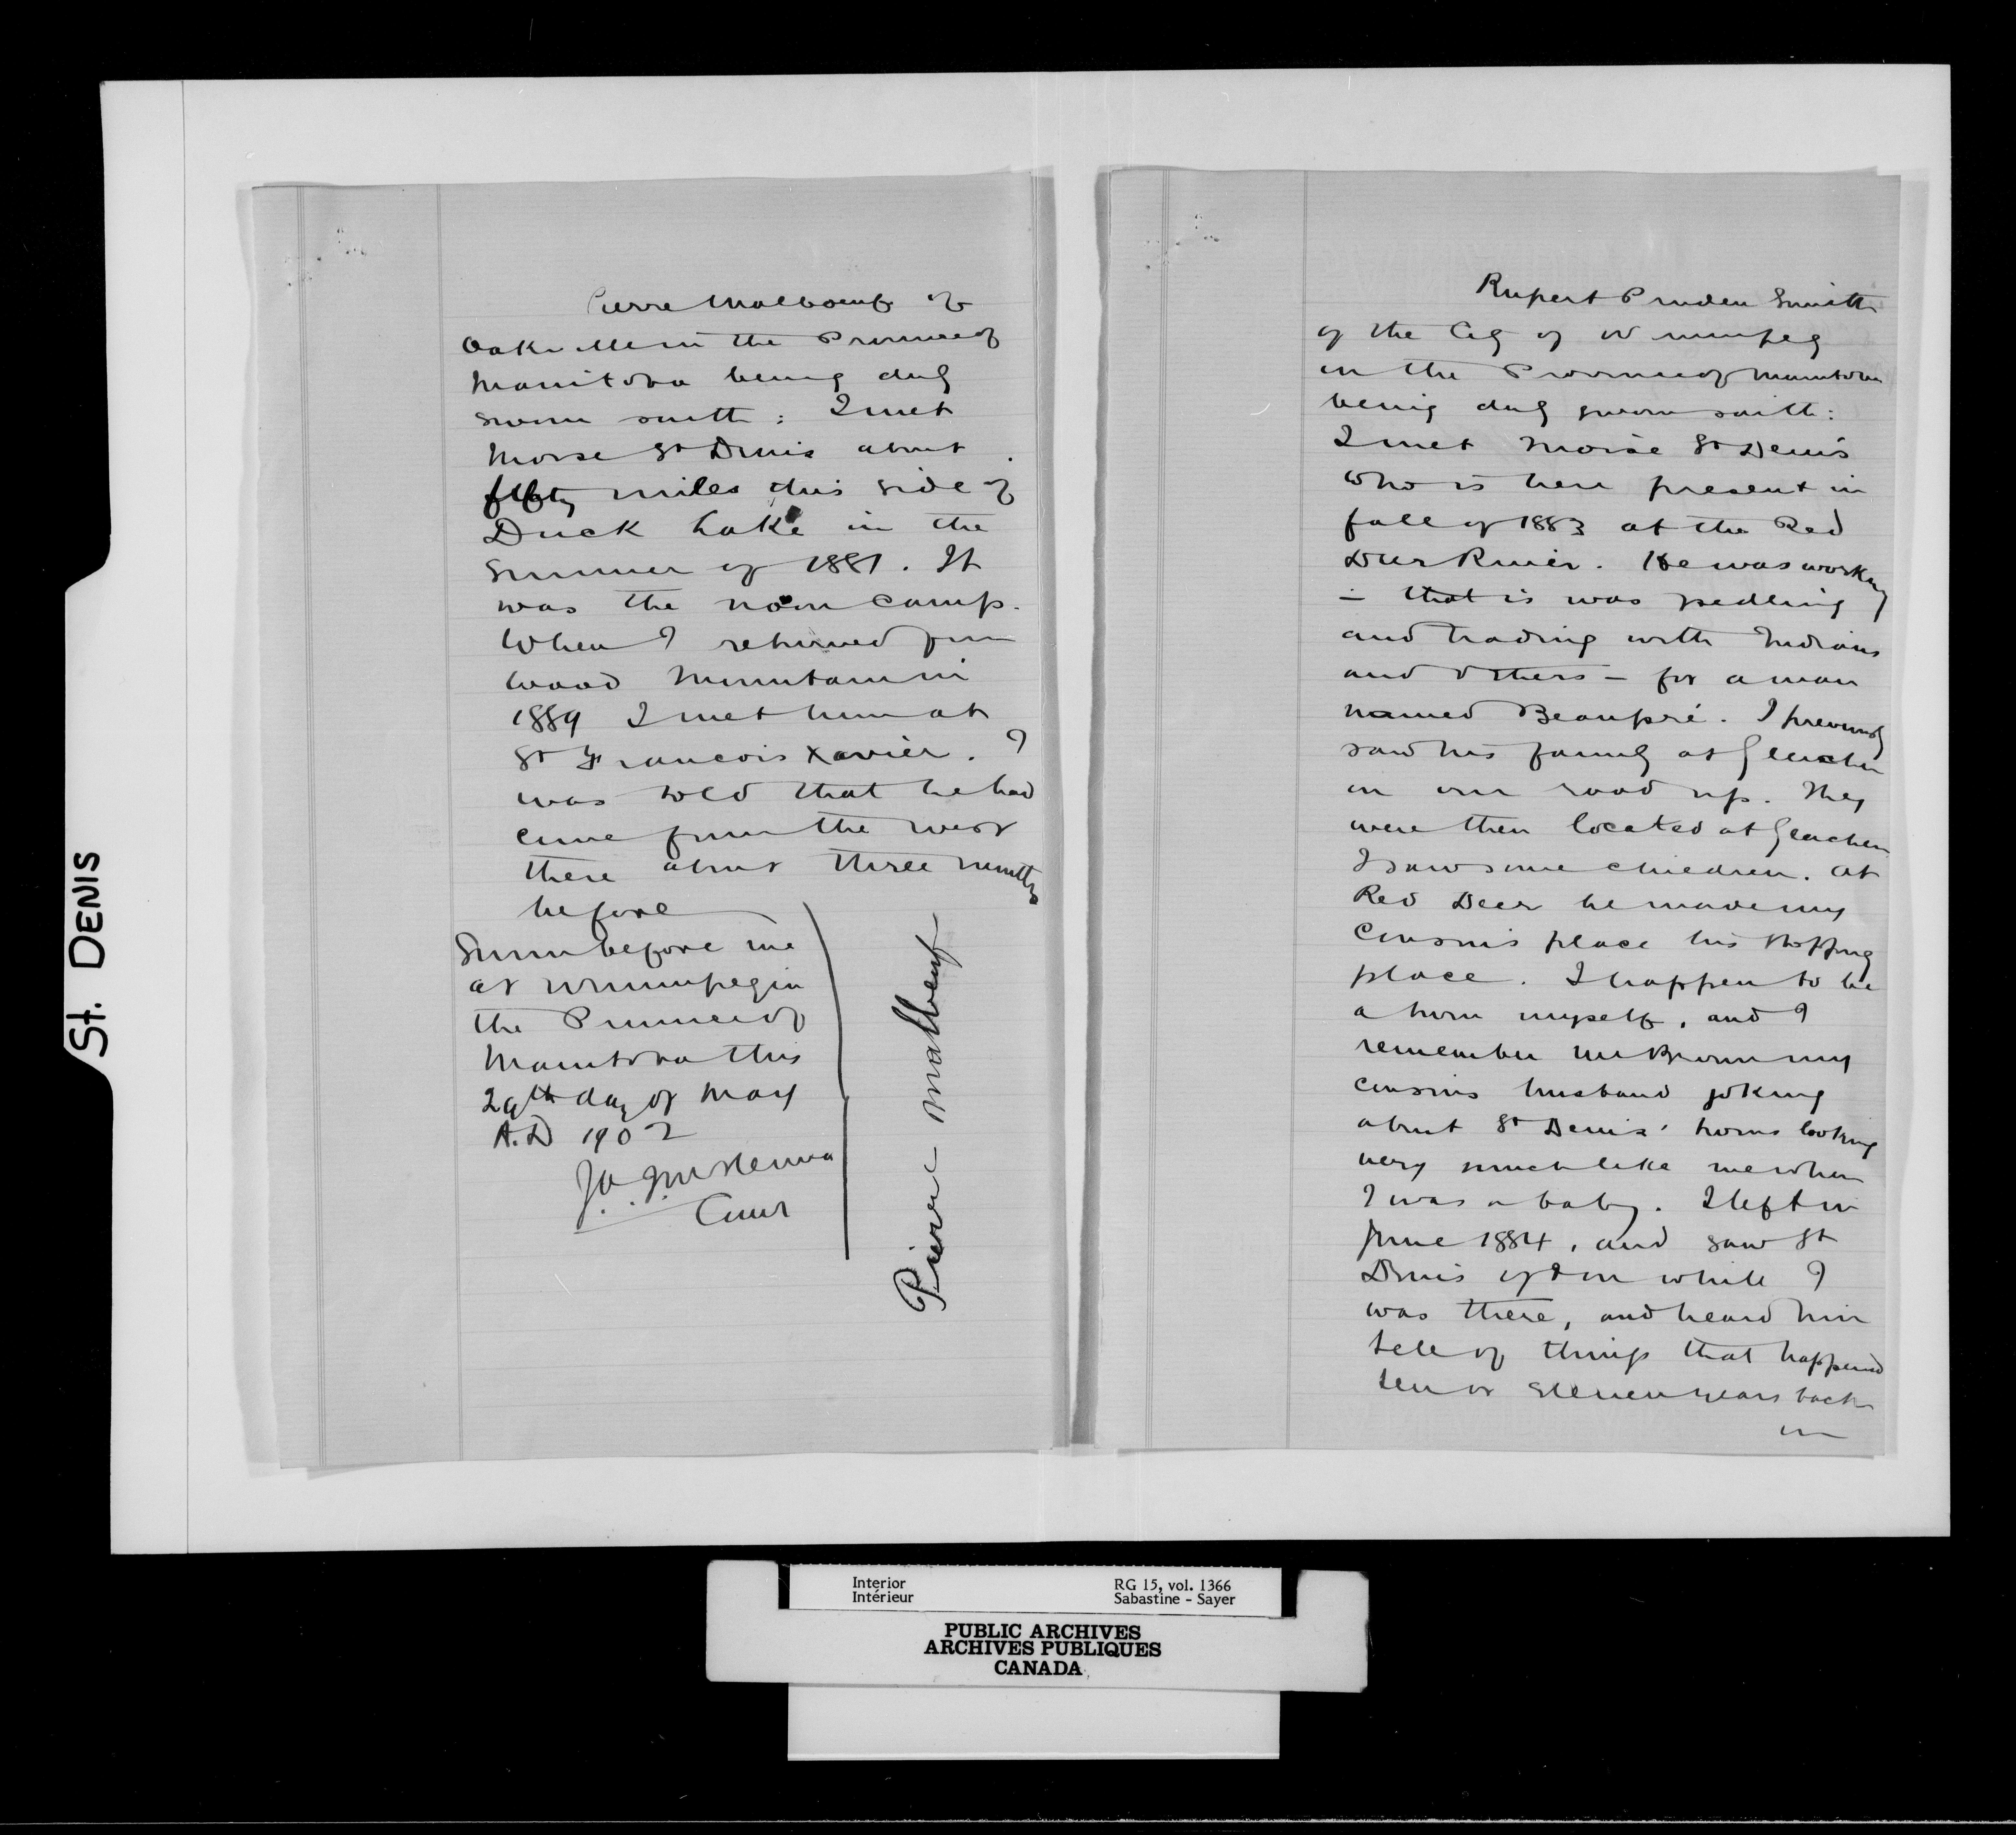 St. DENIS
Pierre Malboeuf of
Oakville in the Province of
Manitoba being duly
sworn saith: I met
Moise St Denis about
fifty miles this side of
Duck Lake in the
Summer of 1881. It
was the noon camp.
When I returned from
Wood Mountain in
1889 I met him at
St Francois Xavier. I
was told that he had
come from the west
there about three months
before
Sworn before me
at Winnipeg in
the Province of
Manitoba this
29th day of May
A.D 1902
Comr
Pierre Malbeuf
Rupert Pruden Smith
of the City of Winnipeg
in the Province of Manitoba
being duly sworn saith:
I met Moise St Denis
who is here present in
fall of 1883 at the Red
Deer River. He was working
- that is was pedling
and trading with Indians
and others - for a man
named Beaupré. I previously
saw his family at Gleichen
on our road up. They
were then located at Gleichen
I saw some children. At
Red Deer he made my
Cousin's place his stopping
place. I happen to be
a twin myself, and I
remember Mr Brown my
cousins husband joking
about St Denis' twins looking
very much like me when
I was a baby. I left in
June 1884, and saw St
Denis often while I
was there, and heard him
tell of things that happened
ten or eleven years back
in
Interior
Intérieur
RG 15, vol. 1366
Sabastine - Sayer
PUBLIC ARCHIVES
ARCHIVES PUBLIQUES
CANADA